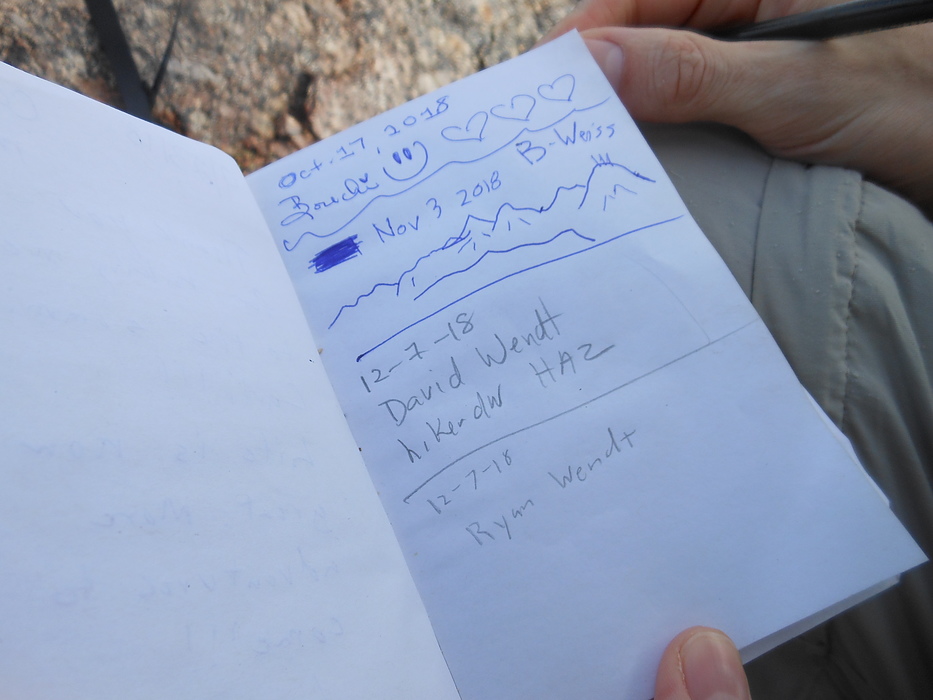 Oct. 17, 2018
B-Weiss
Nov 3 2018
12-7-18
David Wendt
hikerdw HAZ
12-7-18
Ryan Wendt